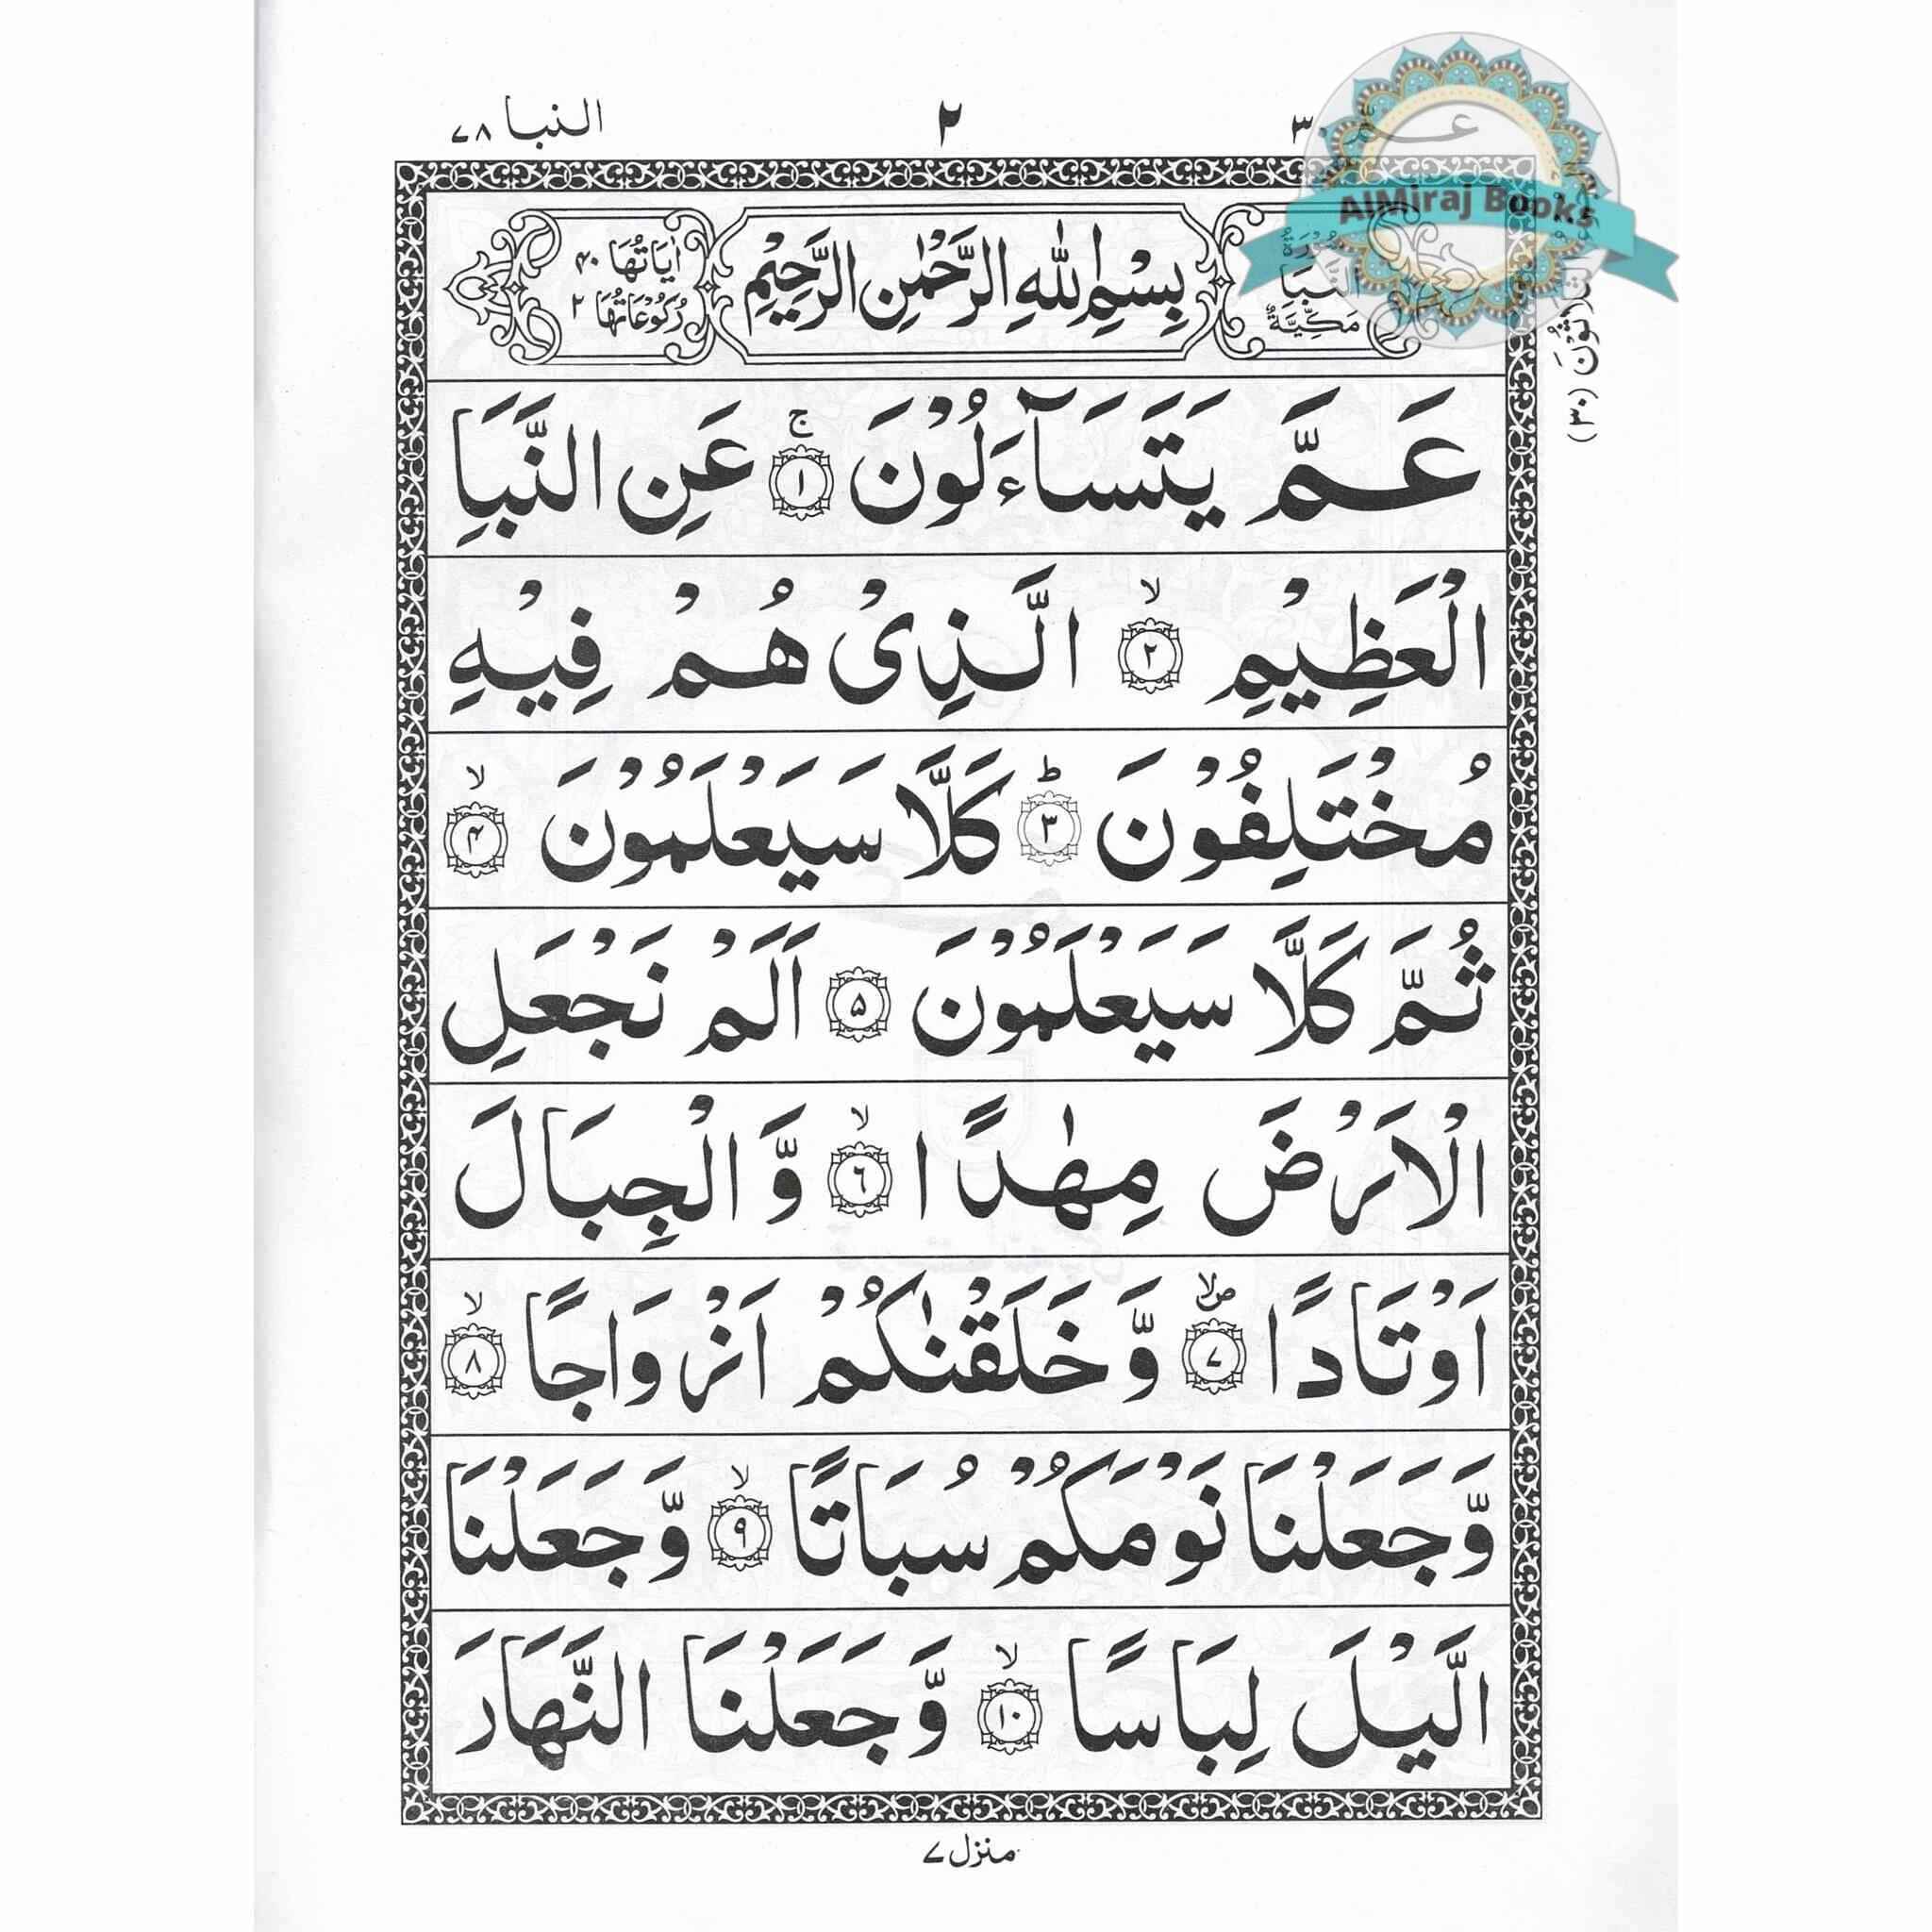 النبا ٧٨
٢
٣
عـم
AlMiraj Books
سُوْرَةُ النَّبَاِ مَكِّيَّةٌ
بِسْمِ اللّٰهِ الرَّحْمٰنِ الرَّحِيْمِ
اٰيَاتُهَا ۴۰
رُكُوْعَاتُهَا ٢
ثَلَاثُوْنَ (٣٠)
عَمَّ يَتَسَآءَلُوْنَ ۚ‏ ﴿۱﴾ عَنِ النَّبَاِ
الْعَظِيْمِ ۙ‏ ﴿۲﴾ الَّذِىْ هُمْ فِيْهِ
مُخْتَلِفُوْنَ ؕ‏ ﴿۳﴾ كَلَّا سَيَعْلَمُوْنَ ۙ‏ ﴿۴﴾
ثُمَّ كَلَّا سَيَعْلَمُوْنَ ﴿۵﴾ اَلَمْ نَجْعَلِ
الْاَرْضَ مِهٰدًا ۙ‏ ﴿۶﴾ وَّالْجِبَالَ
اَوْتَادًا ۪ۙ‏ ﴿۷﴾ وَّخَلَقْنٰكُمْ اَزْوَاجًا ۙ‏ ﴿۸﴾
وَّجَعَلْنَا نَوْمَكُمْ سُبَاتًا ۙ‏ ﴿۹﴾ وَّجَعَلْنَا
الَّيْلَ لِبَاسًا ۙ‏ ﴿۱۰﴾ وَّجَعَلْنَا النَّهَارَ
منزل ٧